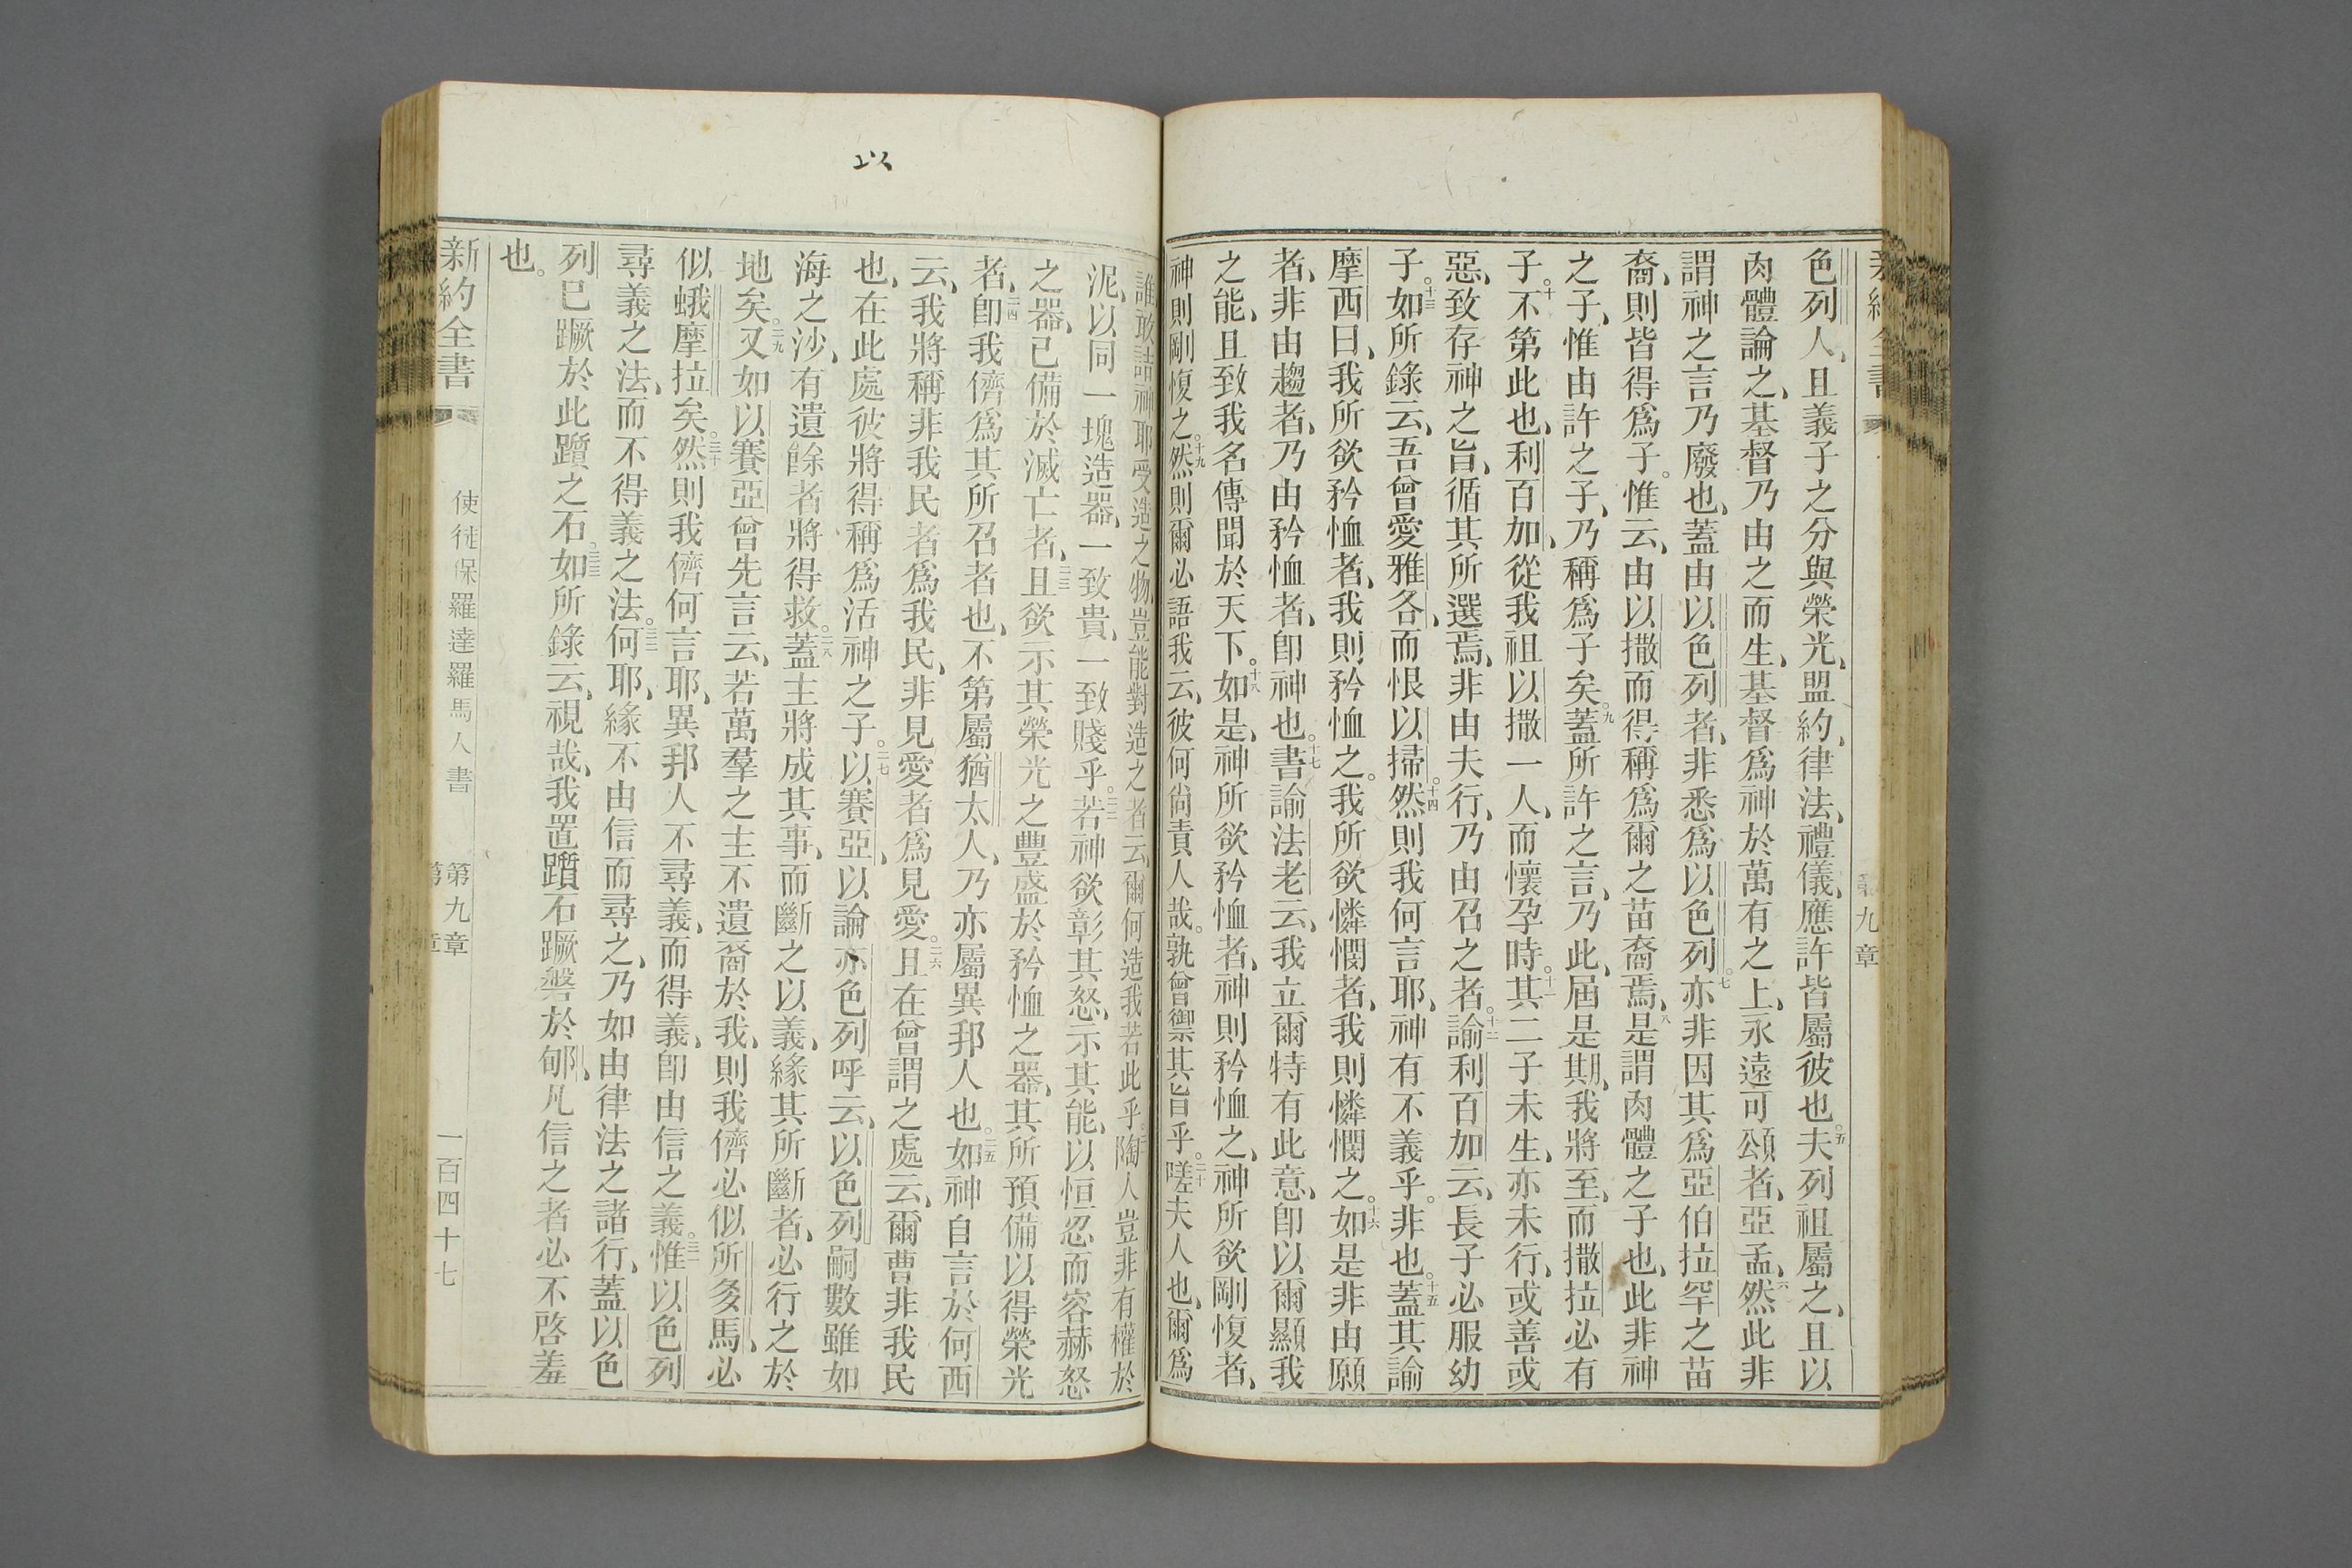 新約全書
第九章
色列人、且義子之分與榮光、盟約、律法、禮儀、應許皆屬彼也。五夫列祖屬之、且以
肉體論之、基督乃由之而生、基督爲神於萬有之上、永遠可頌者、亞孟、六然此非
謂神之言乃廢也、蓋由以色列者、非悉爲以色列。七亦非因其爲亞伯拉罕之苗
裔、則皆得爲子。惟云、由以撒而得稱爲爾之苗裔焉、八是謂肉體之子也、此非神
之子、惟由許之子、乃稱爲子矣。九蓋所許之言、乃此、屆是期、我將至、而撒拉必有
子。十不第此也、利百加、從我祖以撒一人、而懷孕時。十一其二子未生、亦未行、或善或
惡、致存神之旨、循其所選焉、非由夫行、乃由召之者。十二諭利百加云、長子必服幼
子。十三如所錄云、吾曾愛雅各、而恨以掃。十四然則我何言耶、神有不義乎。非也。十五蓋其諭
摩西曰、我所欲矜恤者、我則矜恤之。我所欲憐憫者、我則憐憫之。十六如是非由願
者、非由趨者、乃由矜恤者、卽神也。十七書諭法老云、我立爾特有此意、卽以爾顯我
之能、且致我名傳聞於天下。十八如是、神所欲矜恤者、神則矜恤之、神所欲剛愎者、
神則剛愎之。十九然則爾必語我云、彼何尙責人哉。孰曾禦其旨乎。二十嗟夫人也、爾爲
誰敢詰神耶受造之物豈能對造之者云爾何造我若此乎。陶人豈非有權於
泥、以同一塊造器、一致貴、一致賤乎。二二若神欲彰其怒、示其能、以恒忍而容赫怒
之器、已備於滅亡者、二三且欲示其榮光之豐盛於矜恤之器、其所預備以得榮光
者、二四卽我儕爲其所召者也、不第屬猶太人、乃亦屬異邦人也。二五如神自言於何西
云、我將稱非我民者爲我民、非見愛者爲見愛。二六且在曾謂之處云、爾曹非我民
也、在此處彼將得稱爲活神之子。二七以賽亞、以論亦色列呼云、以色列嗣數雖如
海之沙、有遺餘者將得救。二八蓋主將成其事、而斷之以義、緣其所斷者、必行之於
地矣。二九又如以賽亞曾先言云、若萬羣之主不遺裔於我、則我儕必似所多馬、必
似蛾摩拉矣。三十然則我儕何言耶、異邦人不尋義、而得義、卽由信之義。三一惟以色列
尋義之法、而不得義之法。三二何耶、緣不由信而尋之、乃如由律法之諸行、蓋以色
列已蹶於此躓之石。三三如所錄云、視哉、我置躓石蹶磐於郇、凡信之者必不啓羞
也。
新約全書
使徒保羅達羅馬人書
第九章
一百四十七